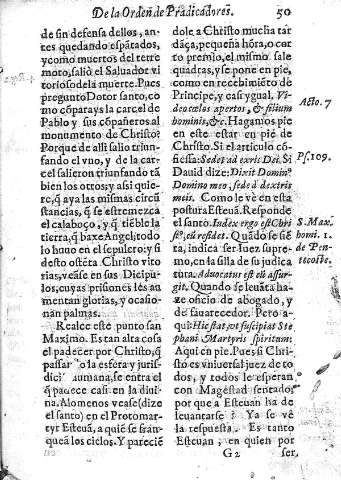 De la Orden de Predicadores. 50
de sin defensa dellos, an-
tes quedando espãtados,
y como muertos del terre
moto, saliò el Saluador vi
toriosode la muerte. Pues
pregunto Dotor santo, co
mo cõparays la carcel de
Pablo y sus cõpañeros al
monumento de Christo?
Porque de alli salio triun-
fando el vno, y de la car-
cel salieron triunfando tã
bien los otros; y assi quie-
re, q̃ aya las mismas circũ
stancias, q̃ se estremezca
el calaboço, y q̃ tiẽble la
tierra, q̃ baxe Angel; todo
lo huuo en el sepulcro; y si
desto ostẽta Christo vito
rias, veãse en sus Dicipu-
los, cuyas prisiones les au
mentan glorias, y ocasio-
nan palmas.
Realce este punto san
Maximo. Es tan alta cosa
el padecer por Christo, q̃
passar a la esfera y juris-
dici humana, se entra el
q̃ padece casi en la diui-
na. Alomenos vease (dize
el santo) en el Protomar-
tyr Esteuã, a quiẽ se fran-
queã los cielos. Y pareciẽ
dole a Christo mucha tar
dãça, pequeña hora, o cor
to premio, el mismo sale
quadras, y se pone en pie,
como en recebimiẽto de
Principe, y casi ygual. Vi-
deo cælos apertos, & filium
hominis, &c. Hagamos pie
en este estar en pie de
Christo. Si el articulo cõ-
fiessa: Sedet ad exris Dei. Si
Dauid dize: Dixit Domin9
Domino meo, sede à dextris
meis. Como le vè en esta
postura Esteuã. Responde
el santo. Index ergo est Chri-
st9, est resedit. Quãdo se siẽ
ta, indica ser Iuez supre-
mo, en la silla de su judica
tura. Aduocatus est cũ assur-
git. Quando se leuãta ha-
ze oficio de abogado, y
de fauarecedor. Pero a-
qui: Hic stat, vt suscipiat Ste
phani Martyris spiritum:
Aqui en pie. Pues si Chri-
sto es vniuersal juez de to
dos, y todos le esperan
con Magestad sentados
por que a Esteuan ha de
leuantarse? Ya se vè
la respuesta. Es tanto
Esteuan, en quien por
Acto. 7
Ps. 109.
S. Max.
homi. 1.
de Pen-
tecoste.
G 2 ser,